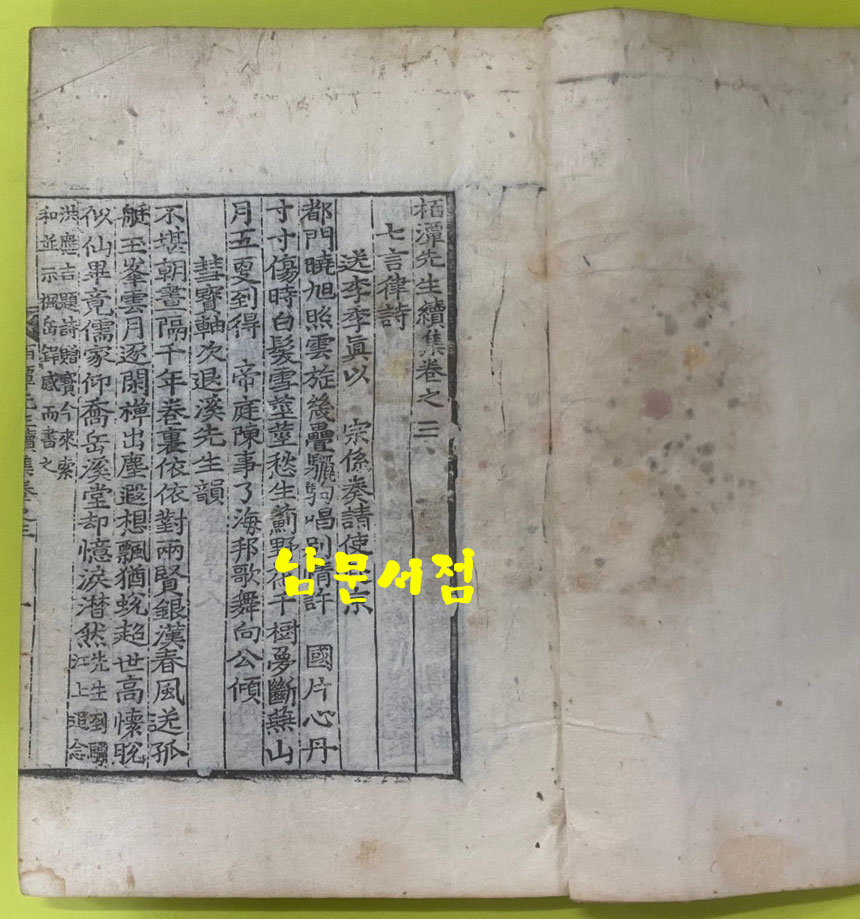 栢潭先生續集卷之三
七言律詩
送李季眞以 宗係奏請使
都門曉旭照雲旋幾疊驪駒唱別情許 國片心丹
寸寸傷時白髮雪莖莖愁生薊野 千樹夢斷燕山
月五更到得 帝庭陳事了海邦歌舞向公傾
彗寶軸次退溪先生韻
不堪朝晝隔千年卷裏依依對兩賢銀漢春風送孤
艇玉峯雲月逐閑禪出塵遐想飄猶蛻超世高懷眇
似仙畢竟儒家仰喬岳溪堂却憶淚潸然先生到驪江上追念
洪應吉題詩贈寶今來索
和並示楓岳錄感而書之
先生續集卷之三
남문서점